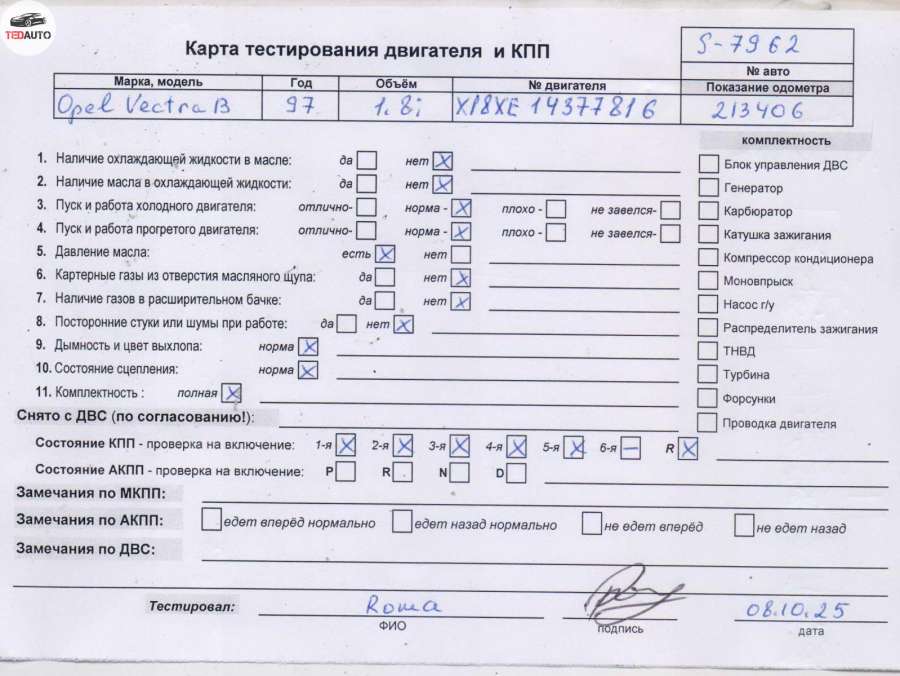 TEDAUTO
Карта тестирования двигателя и КПП
S-7962
№ авто
Марка, модель Год Объём № двигателя Показание одометра
Opel Vectra B 97 1.8i X18XE 14377816 213406
комплектность
1. Наличие охлаждающей жидкости в масле: да нет X
Блок управления ДВС
2. Наличие масла в охлаждающей жидкости: да нет X
Генератор
3. Пуск и работа холодного двигателя: отлично- норма - X плохо - не завелся-
Карбюратор
4. Пуск и работа прогретого двигателя: отлично- норма - X плохо - не завелся-
Катушка зажигания
5. Давление масла: есть X нет
Компрессор кондиционера
6. Картерные газы из отверстия масляного щупа: да нет X
Моновпрыск
7. Наличие газов в расширительном бачке: да нет X
Насос г/у
8. Посторонние стуки или шумы при работе: да нет X
Распределитель зажигания
9. Дымность и цвет выхлопа: норма X
ТНВД
10. Состояние сцепления: норма X
Турбина
11. Комплектность : полная X
Форсунки
Снято с ДВС (по согласованию!):
Проводка двигателя
Состояние КПП - проверка на включение: 1-я X 2-я X 3-я X 4-я X 5-я X 6-я — R X
Состояние АКПП - проверка на включение: P R N D
Замечания по МКПП:
Замечания по АКПП: едет вперёд нормально едет назад нормально не едет вперёд не едет назад
Замечания по ДВС:
Тестировал: Roma 08.10.25
ФИО подпись дата